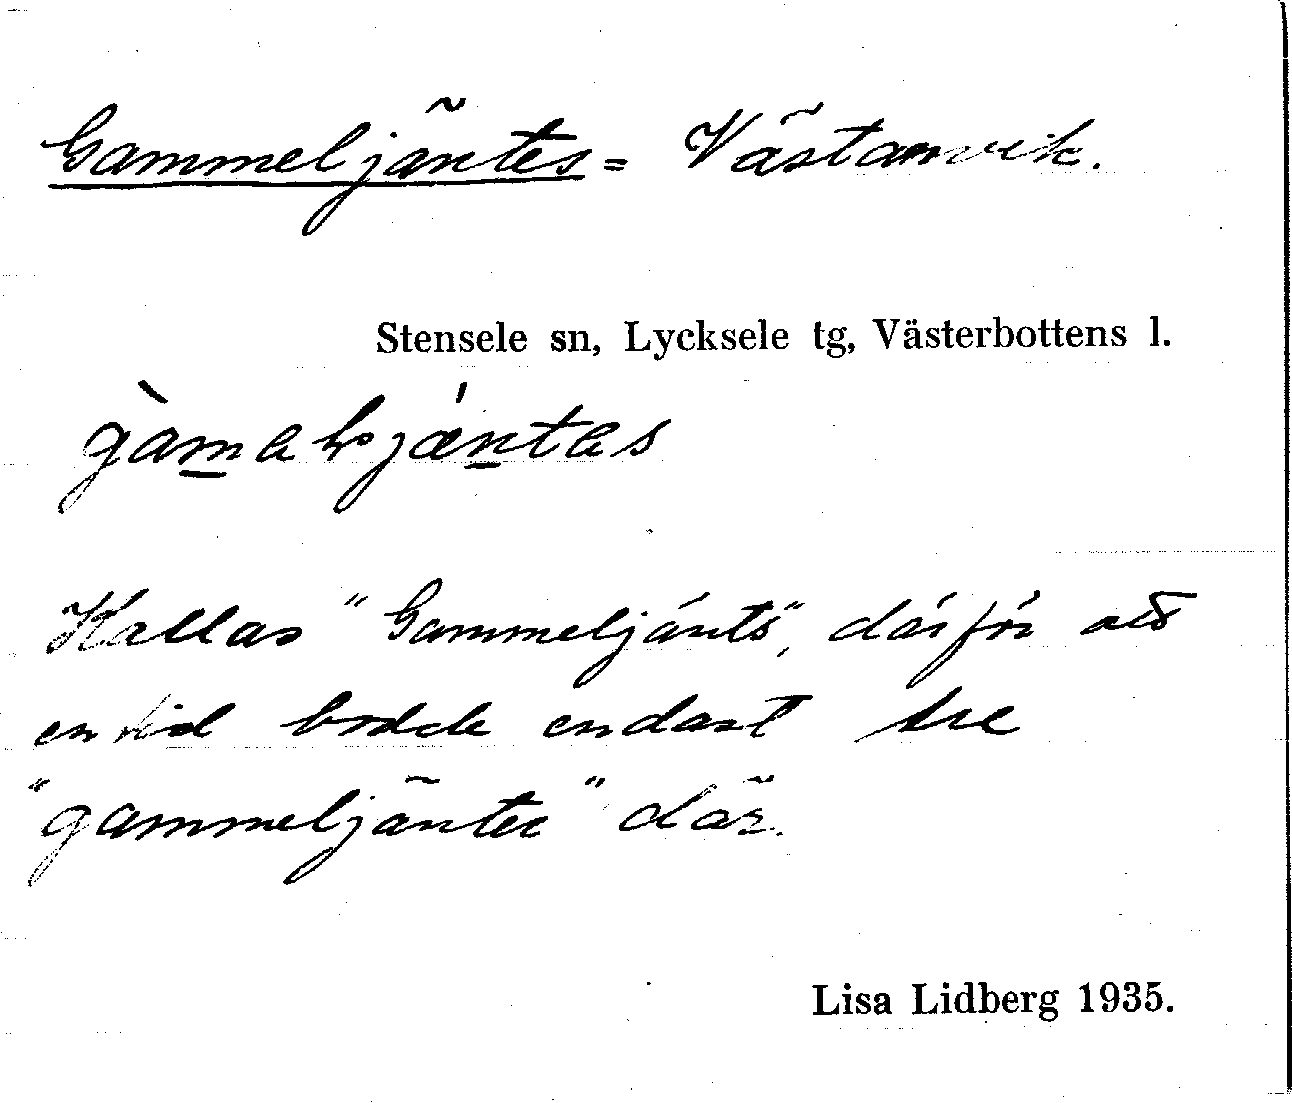 Gammeljäntes = Västanvik.
Stensele sn, Lycksele tg, Västerbottens l.
Kallas "Gammeljänts", därför att
en tid bodde endast tre
"gammeljänter" där.
Lisa Lidberg 1935.